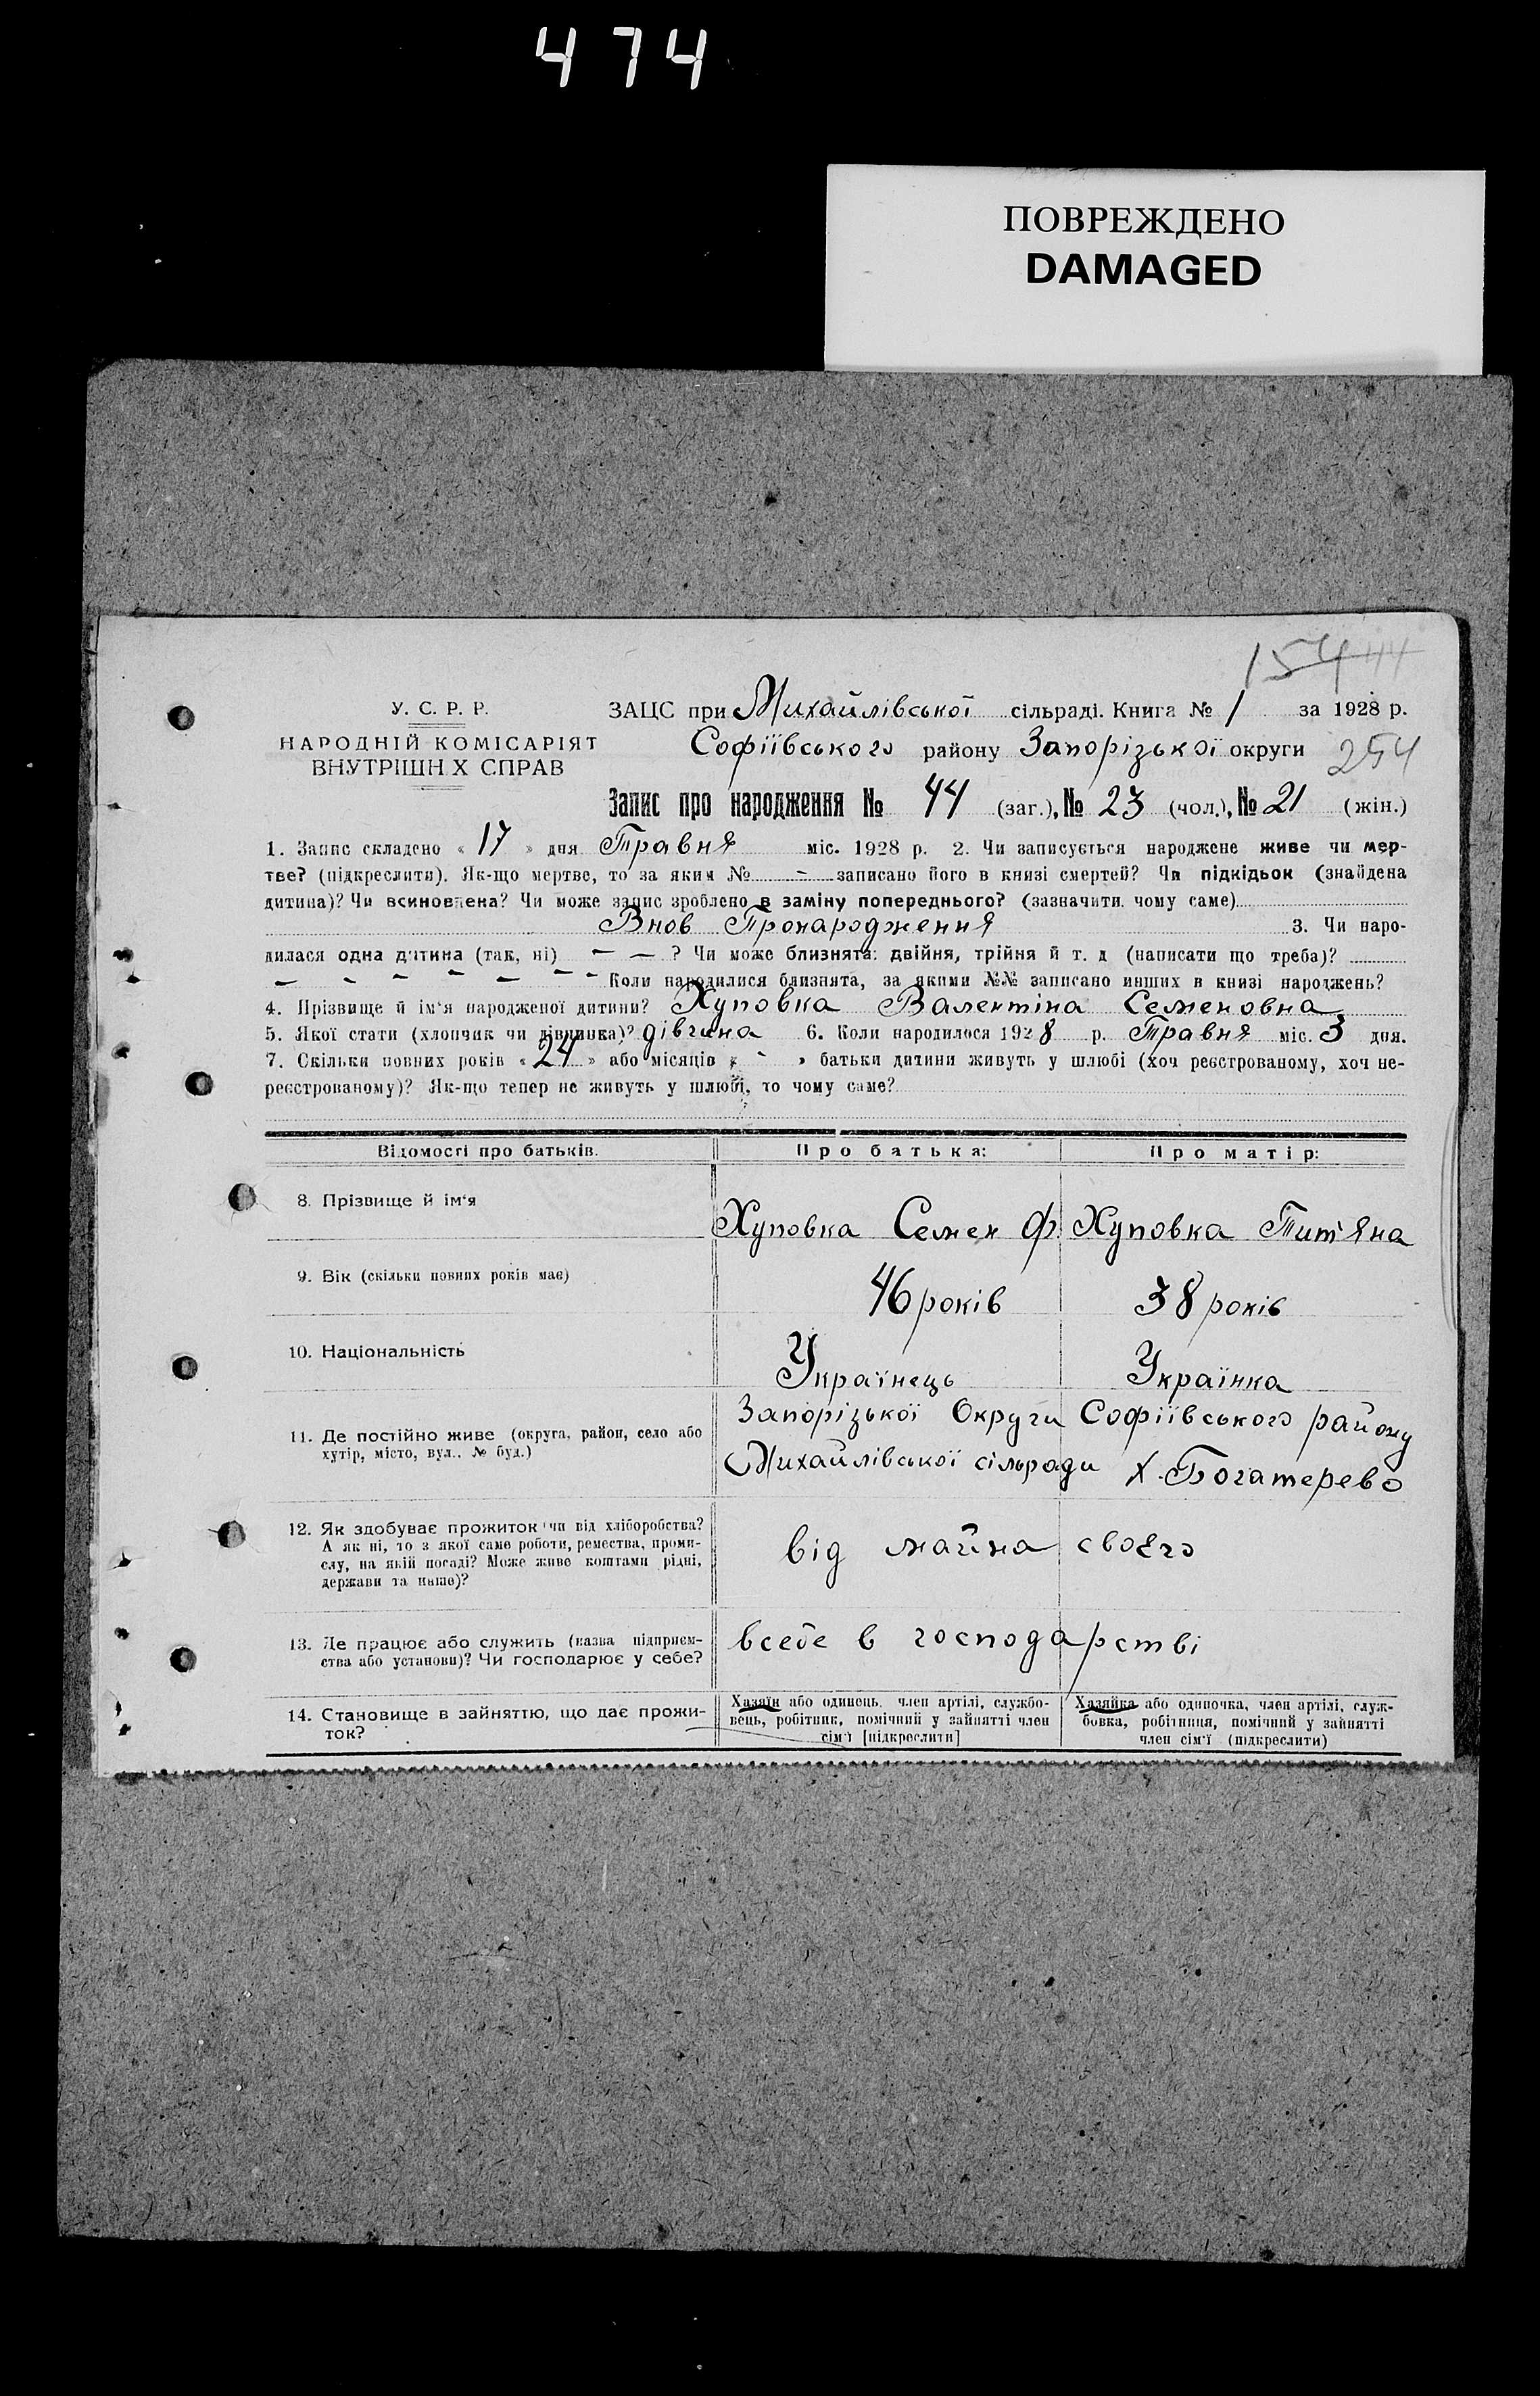 474
ПОВРЕЖДЕНО
DAMAGED
154 44
У. С. Р. Р.
НАРОДНІЙ КОМІСАРІЯТ
ВНУТРІШН Х СПРАВ
ЗАЦС при Михайлівської сільраді. Книга № 1 за 1928 р.
Софіївського району Запорізької округи 254
Запис про народження № 44 (заг.), № 23 (чол.), № 21 (жін.)
1. Запис складено « 17 » дня Травня міс. 1928 р. 2. Чи записується народжене живе чи мер-
тве? (підкреслити). Як-що мертве, то за яким № - записано його в книзі смертей? Чи підкідьок (знайдена
дитина)? Чи всиновлена? Чи може запис зроблено в заміну попереднього? (зазначити чому саме)
Внов Пронародження 3. Чи наро-
дилася одна дитина (так, ні) — — ? Чи може близнята: двійня, трійня й т. д (написати що треба)?
— - - - — - - - Коли народилися близнята, за якими №№ записано инших в книзі народжень?
4. Прізвище й ім'я народженої дитини? Хуповка Валентіна Семеновна
5. Якої стати (хлопчик чи дівчинка)? дівчина 6. Коли народилося 1928 р. Травня міс. 3 дня.
7. Скільки повних років « 24 » або місяців « - » батьки дитини живуть у шлюбі (хоч реєстрованому, хоч не-
реєстрованому)? Як-що тепер не живуть у шлюбі, то чому саме?
Відомості про батьків. Про батька: Про матір:
8. Прізвище й ім'я Хуповка Семен Ф. Хуповка Тит'яна
9. Вік (скільки повних років має) 46 років 38 років
10. Національність Українець Українка
11. Де постійно живе (округа, район, село або
хутір, місто, вул., № буд.)
Запорізької Округи Софіївського району
Михайлівської сільради х. Богатерево
12. Як здобуває прожиток (чи від хліборобства?
А як ні, то з якої саме роботи, ремества, проми-
слу, на якій посаді? Може живе коштами рідні,
держави та инше)?
від майна своєго
13. Де працює або служить (назва підприєм-
ства або установи)? Чи господарює у себе?
всебе в господарстві
14. Становище в зайняттю, що дає прожи-
ток?
Хазяїн або одинець, член артілі, службо-
вець, робітник, помічний у зайнятті член
сім'ї [підкреслити]
Хазяйка або одиночка, член артілі, служ-
бовка, робітниця, помічний у зайнятті
член сім'ї (підкреслити)